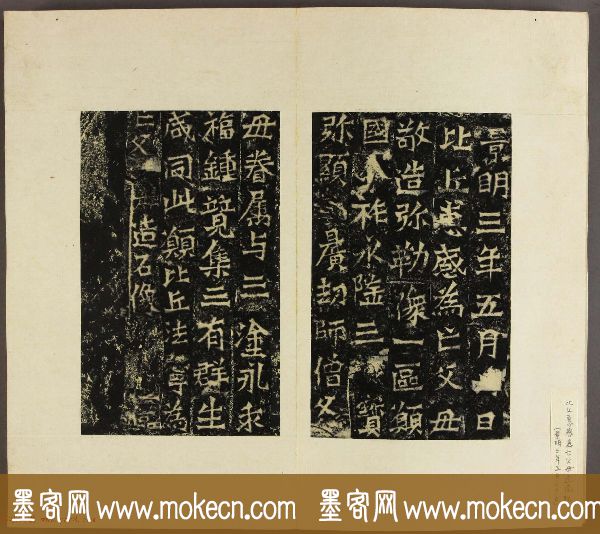 景明三年五月日
比丘惠感為亡父母
敬造弥勒像一區願
國祚永隆三寶
弥顯曠劫師僧父
母眷属与三塗永乖
福鍾集三有群生
咸同此願比丘法寧為
亡父造石像
比丘惠感造亡父母
景明三年五
墨客网 www.mokecn.com
墨客网 www.mokecn.com